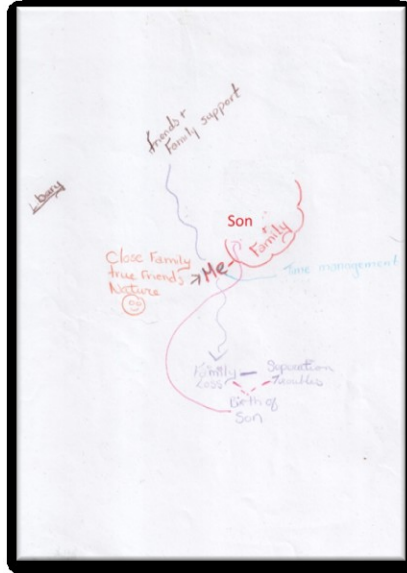 Friends +
Family support
Son
+
Family
Close Family
true Friends
Nature
Me
Time management
Family
Loss
Separation
Troubles
Birth of
Son